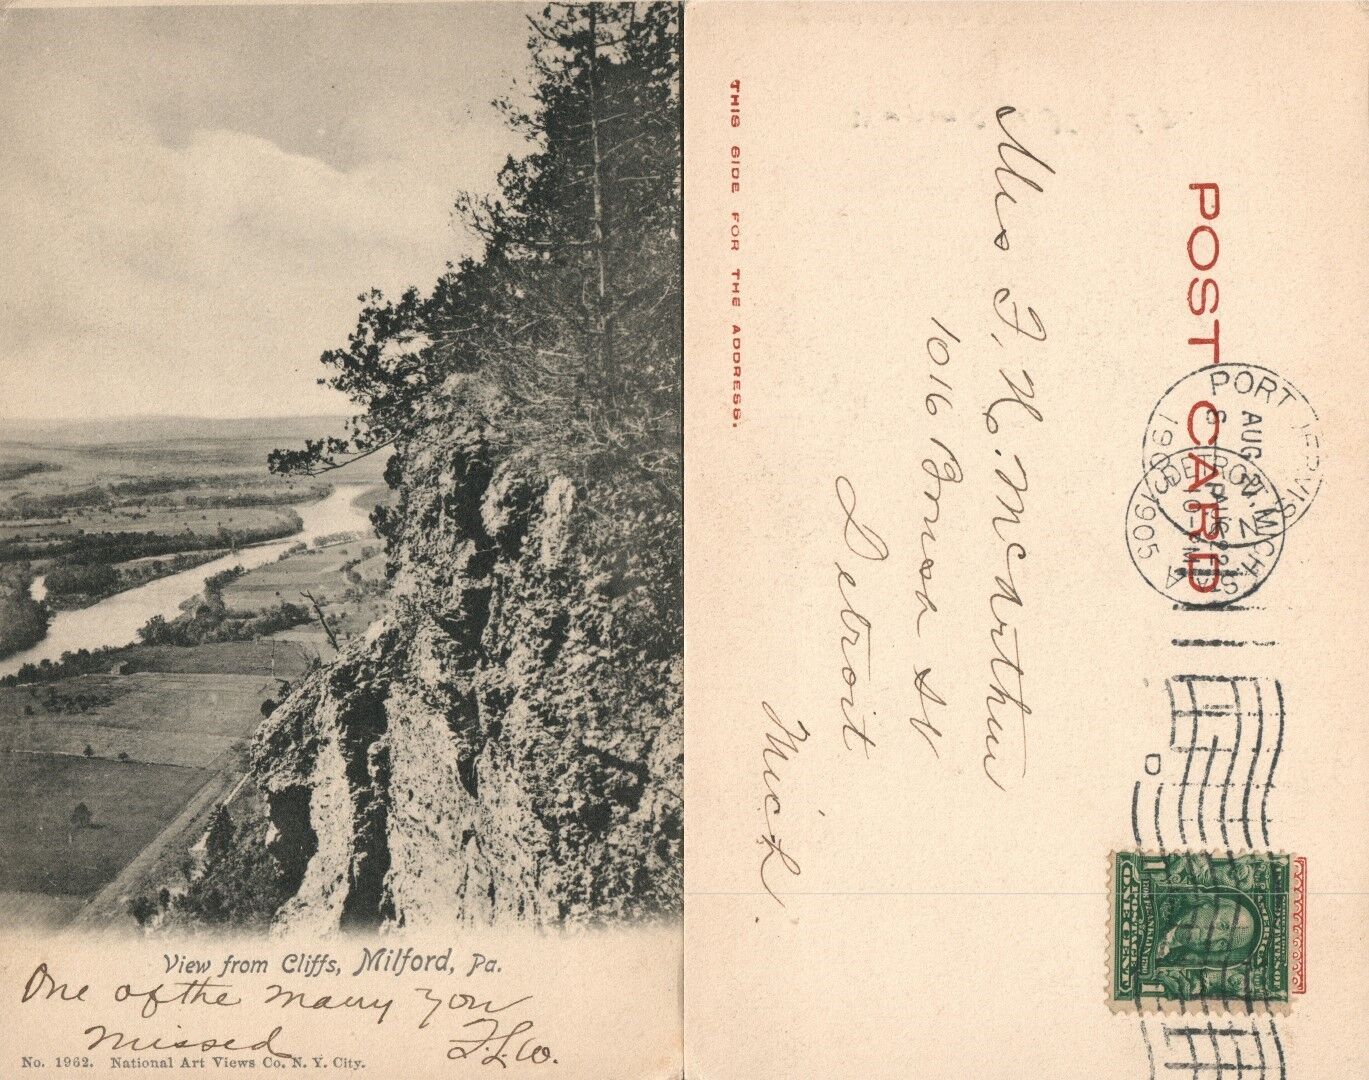 View from Cliffs, Milford, Pa.
One of the many you
missed
F.L.W.
No. 1962. National Art Views Co. N. Y. City.
THIS SIDE FOR THE ADDRESS.
POST CARD
PORT JERVIS
AUG
1905
N
DETROIT, MICH.
AUG 22
10-
1905
A
D
Mrs F. H. McArthur
1016 Brush St
Detroit
Mich.
ONE CENT